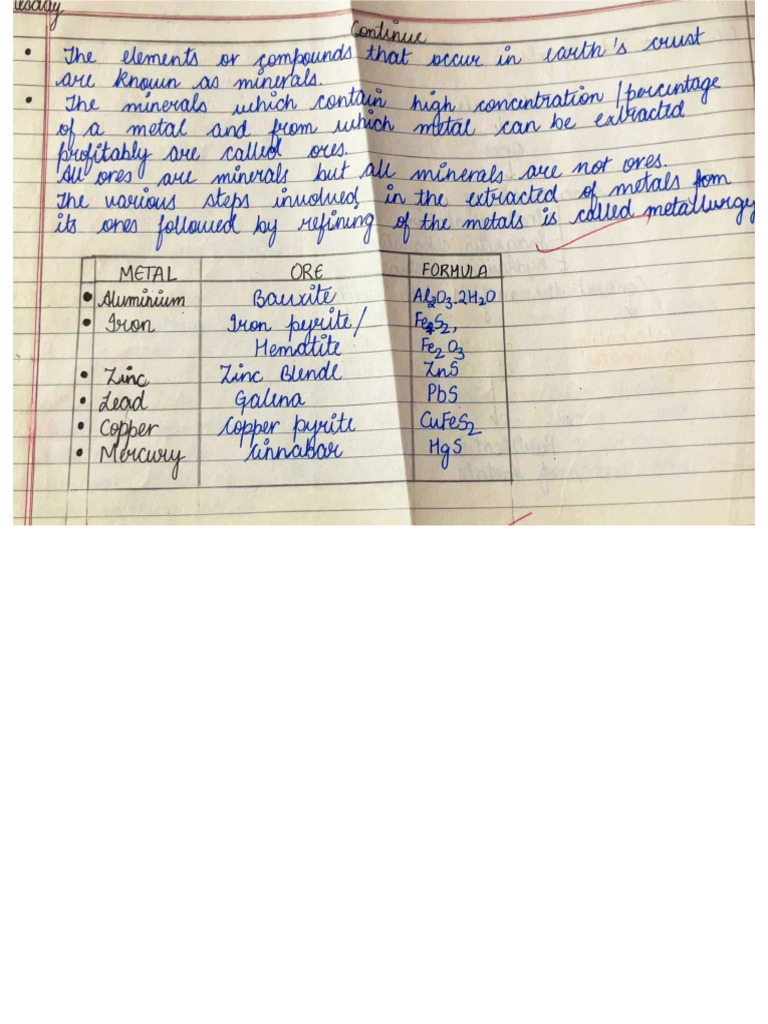 esday
Continue
• The elements or compounds that occur in earth's crust
are known as minerals.
• The minerals which contain high concentration / percentage
of a metal and from which metal can be extracted
profitably are called ores.
All ores are minerals but all minerals are not ores.
The various steps involved in the extracted of metals from
its ores followed by refining of the metals is called metallurgy
METAL ORE FORMULA
• Aluminium Bauxite Al2O3.2H2O
• Iron Iron pyrite/ FeS2,
Hematite Fe2O3
• Zinc Zinc Blende ZnS
• Lead Galena PbS
• Copper Copper pyrite CuFeS2
• Mercury Cinnabar HgS